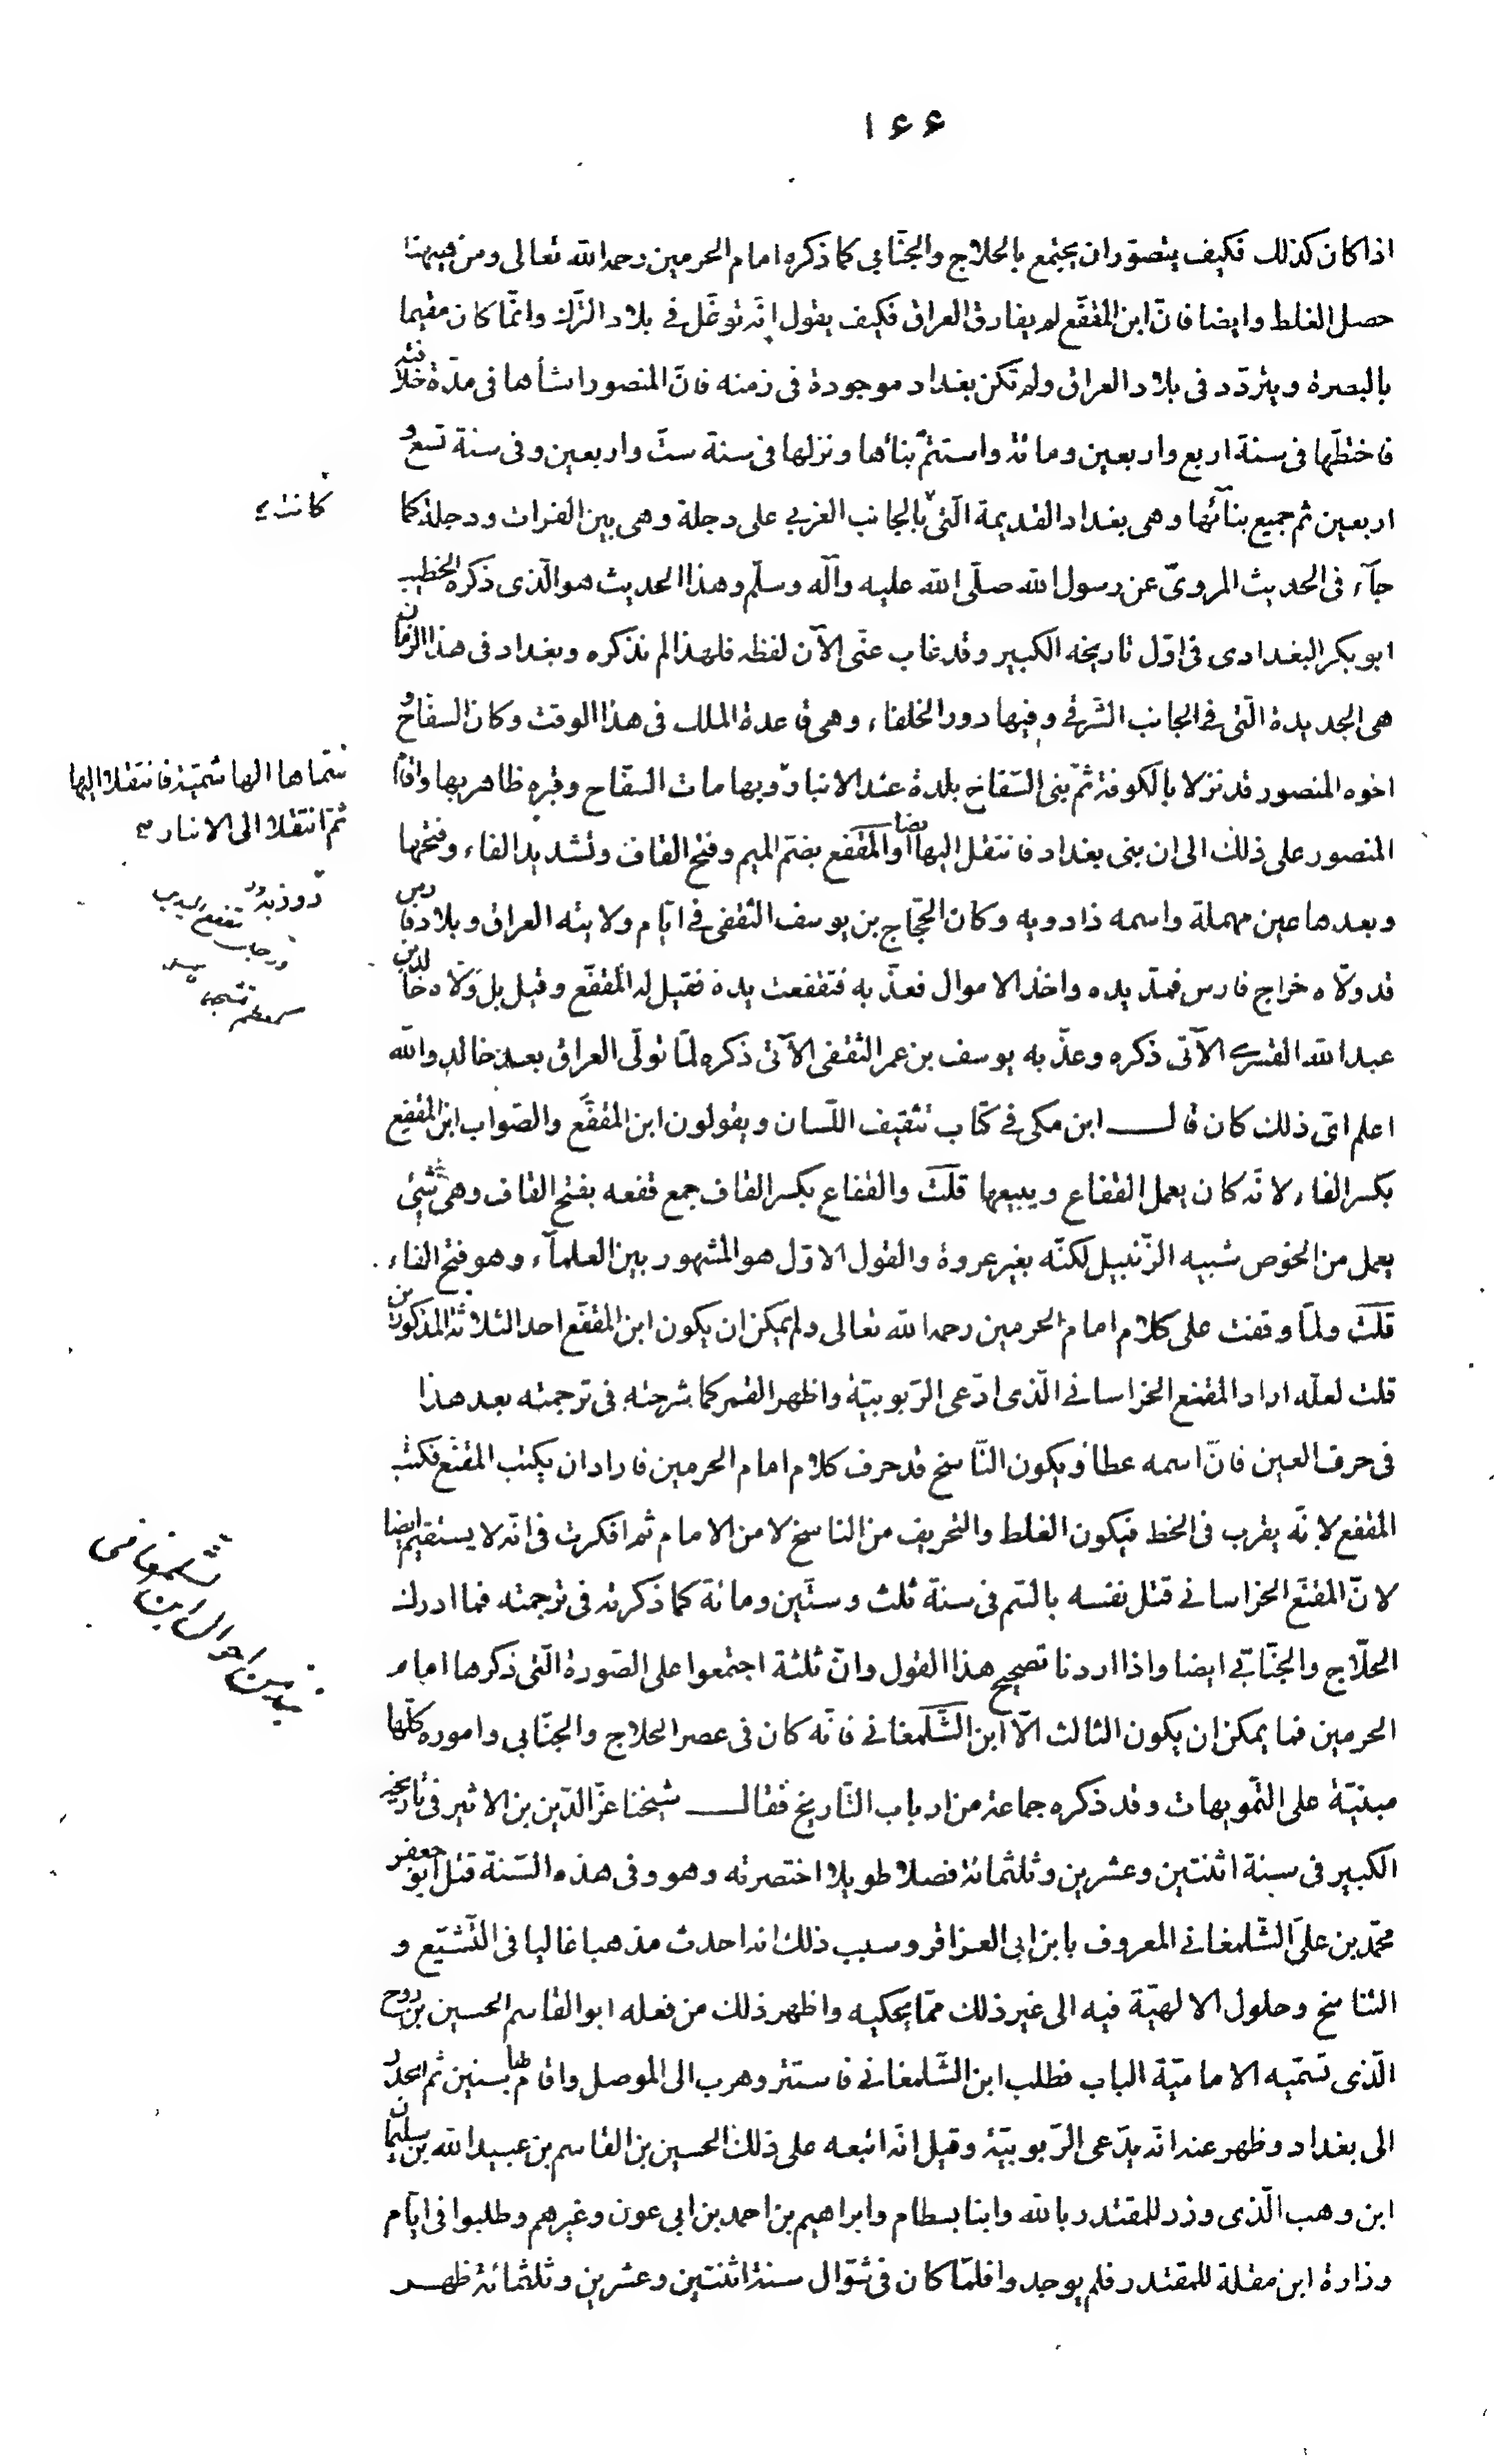 ۱۶۶
اذا كان كذلك فكيف يتصوّر ان يجتمع بالحلاج والجنّابي كما ذكره امام الحرمين رحمه الله تعالى ومن هيهنا
حصل الغلط وايضا فانّ ابن المقفّع لم يفارق العراق فكيف يقول انّه توغّل في بلاد الترك وانّما كان مقيما
بالبصرة ويتردّد فى بلاد العراق ولم تكن بغداد موجودة فى زمنه فانّ المنصور انشأها فى مدّة خلافته
فاختطّها فى سنة اربع واربعين ومائة واستتمّ بنائها ونزلها فى سنة ستّ واربعين وفى سنة تسع و
اربعين تم جميع بنآئها وهى بغداد القديمة الّتى بالجانب الغربي على دجلة وهى بين الفرات ودجلة كما
كانت
جآء فى الحديث المروىّ عن رسول الله صلّى الله عليه وآله وسلّم وهذا الحديث هو الّذى ذكره الخطيب
ابو بكر البغدادى فى اوّل تاريخه الكبير وقد غاب عنّى الآن لفظه فلهذا لم نذكره وبغداد فى هذا الزمان
هى الجديدة الّتى فى الجانب الشرقي وفيها دور الخلفاء وهى قاعدة الملك فى هذا الوقت وكان السفّاح و
اخوه المنصور قد نزلا بالكوفة ثمّ بنى السّفاح بلدة عند الانبار وبها مات السفّاح وقبره ظاهر بها واقام
فسمّاها الهاشميّة فانتقلا اليها
ثمّ انتقلا الى الانبار
المنصور على ذلك الى ان بنى بغداد فانتقل اليها ايضا والمقفع بضم الميم وفتح القاف وتشديد الفاء وفتحها
وبعدها عين مهملة واسمه داذويه وكان الحجّاج بن يوسف الثقفى فى ايّام ولايته العراق وبلاد فارس
قد ولّاه خراج فارس فمدّ يده واخذ الاموال فعذّبه فتقفعت يده فقيل له المقفّع وقيل بل ولّاه خالد بن
عبد الله القسرى الآتى ذكره وعذّبه يوسف بن عمر الثقفى الآتى ذكره لمّا تولّى العراق بعد خالد والله
اعلم اىّ ذلك كان قال ابن مكى فى كتاب تثقيف اللّسان ويقولون ابن المقفّع والصّواب ابن المقفع
بكسر الفاء لانّه كان يعمل القفاع ويبيعها قلت والقفاع بكسر القاف جمع قفعه بفتح القاف وهى شئ
يعمل من الخوص شبيه الزّنبيل لكنّه بغير عروة والقول الاوّل هو المشهور بين العلمآء وهو فتح الفاء
قلت ولمّا وقفت على كلام امام الحرمين رحمه الله تعالى ولم يمكن ان يكون ابن المقفّع احد الثلاثة المذكورين
قلت لعلّه اراد المقنع الخراساني الّذى ادّعى الرّبوبيّة واظهر القمر كما شرحته فى ترجمته بعد هذا
فى حرف العين فانّ اسمه عطا ويكون النّاسخ قد حرف كلام امام الحرمين فاراد ان يكتب المقنّع فكتب
المقفع لانّه يقرب فى الخط فيكون الغلط والتحريف من الناسخ لا من الامام ثم افكرت فى انّه لا يستقيم ايضا
لانّ المقنّع الخراساني قتل نفسه بالسّم فى سنة ثلث وستّين ومائة كما ذكرته فى ترجمته فما ادرك
الحلّاج والجنّابي ايضا واذا اردنا تصحيح هذا القول وانّ ثلثة اجتمعوا على الصّورة الّتى ذكرها امام
الحرمين فما يمكن ان يكون الثالث الّا ابن الشّلمغاني فانّه كان فى عصر الحلاج والجنّابي واموره كلّها
مبنيّة على التّمويهات وقد ذكره جماعة من ارباب التّاريخ فقال شيخنا عزّ الدّين بن الاثير فى تاريخه
الكبير فى سنة اثنتين وعشرين وثلثمائة فصلا طويلا اختصرته وهو وفى هذه السّنة قتل ابو جعفر
محمّد بن علىّ الشّلمغاني المعروف بابن ابى العزاقر وسبب ذلك انه احدث مذهبا غاليا فى التّشيّع و
التناسخ وحلول الالهيّة فيه الى غير ذلك ممّا يحكيه واظهر ذلك من فعله ابو القاسم الحسين بن روح
الّذى تسمّيه الاماميّة الباب فطلب ابن الشّلمغاني فاستتر وهرب الى الموصل واقام بها سنين ثم انحدر
الى بغداد وظهر عنه انّه يدّعى الرّبوبيّة وقيل انّه اتبعه على ذلك الحسين بن القاسم بن عبيد الله بن سليمان
ابن وهب الّذى وزر للمقتدر بالله وابنا بسطام وابراهيم بن احمد بن ابى عون وغيرهم وطلبوا فى ايّام
وزارة ابن مقلة للمقتدر فلم يوجدوا فلمّا كان فى شوّال سنة اثنتين وعشرين وثلثمائة ظهر